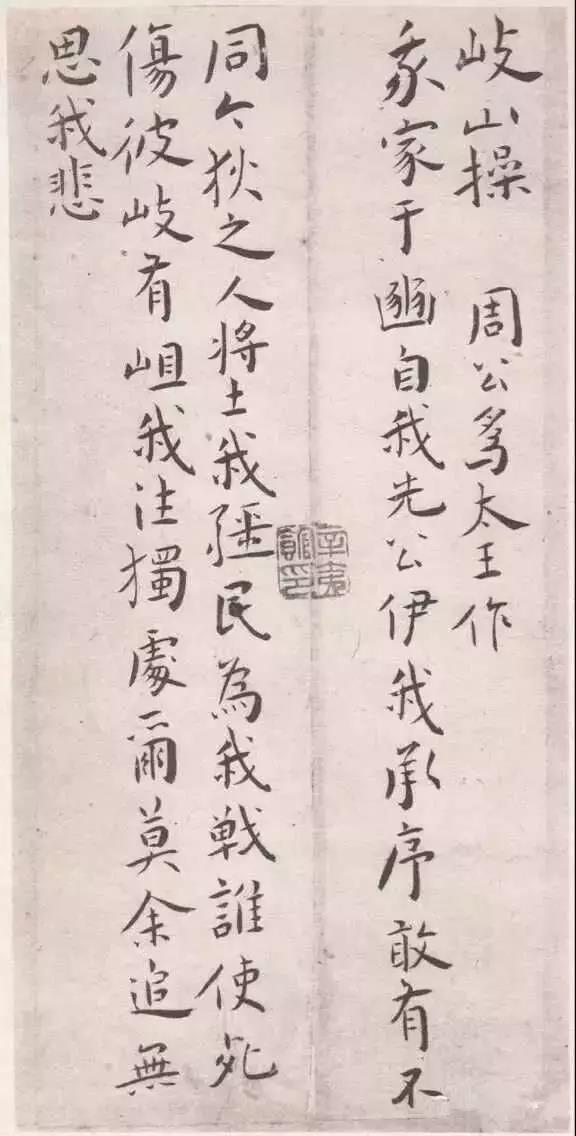 岐山操 周公為太王作
我家于豳自我先公伊我承序敢有不
同今狄之人將土我疆民為我戰誰使死
傷彼岐有岨我往獨處爾莫余追無
思我悲